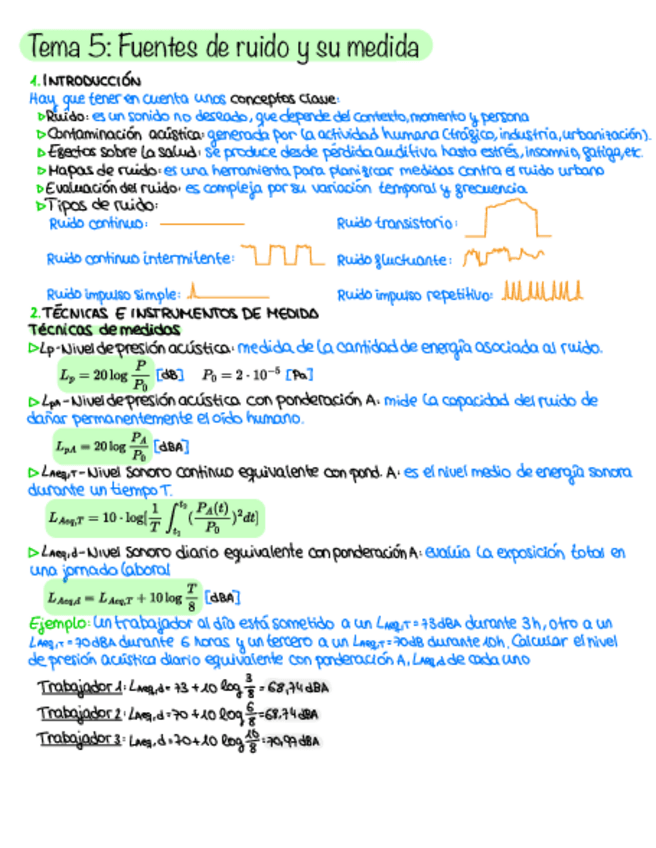 Tema 5: Fuentes de ruido y su medida
1. INTRODUCCIÓN
Hay que tener en cuenta unos conceptos clave:
▷Ruido: es un sonido no deseado, que depende del contexto, momento y persona
▷Contaminación acústica: generada por la actividad humana (tráfico, industria, urbanización).
▷Efectos sobre la salud: se produce desde pérdida auditiva hasta estrés, insomnio, fatiga, etc.
▷Mapas de ruido: es una herramienta para planificar medidas contra el ruido urbano
▷Evaluación del ruido: es compleja por su variación temporal y frecuencia
▷Tipos de ruido:
Ruido continuo: Ruido transistorio:
Ruido continuo intermitente: Ruido fluctuante:
Ruido impulso simple: Ruido impulso repetitivo:
2. TÉCNICAS E INSTRUMENTOS DE MEDIDA
Técnicas de medidas
▷Lp-Nivel de presión acústica: medida de la cantidad de energía asociada al ruido.
L_p = 20 log P/P_0 [dB] P_0 = 2 · 10^{-5} [Pa]
▷LpA-Nivel de presión acústica con ponderación A: mide la capacidad del ruido de
dañar permanentemente el oído humano.
L_{pA} = 20 log P_A/P_0 [dBA]
▷LAeq,T-Nivel sonoro continuo equivalente con pond. A: es el nivel medio de energía sonora
durante un tiempo T.
L_{Aeq,T} = 10 · log[1/T ∫_{t_2}^{t_2} (P_A(t)/P_0)^2 dt]
▷LAeq,d-Nivel sonoro diario equivalente con ponderación A: evalúa la exposición total en
una jornada laboral
L_{Aeq,d} = L_{Aeq,T} + 10 log T/8 [dBA]
Ejemplo: un trabajador al día está sometido a un LAeq,T=73dBA durante 3h, otro a un
LAeq,T=70dBA durante 6 horas y un tercero a un LAeq,T=70dB durante 10h. Calcular el nivel
de presión acústica diario equivalente con ponderación A, LAeq,d de cada uno
Trabajador 1: LAeq,d=73+10 log 3/8=68,74dBA
Trabajador 2: LAeq,d=70+10 log 6/8=68,74dBA
Trabajador 3: LAeq,d=70+10 log 10/8=70,97dBA